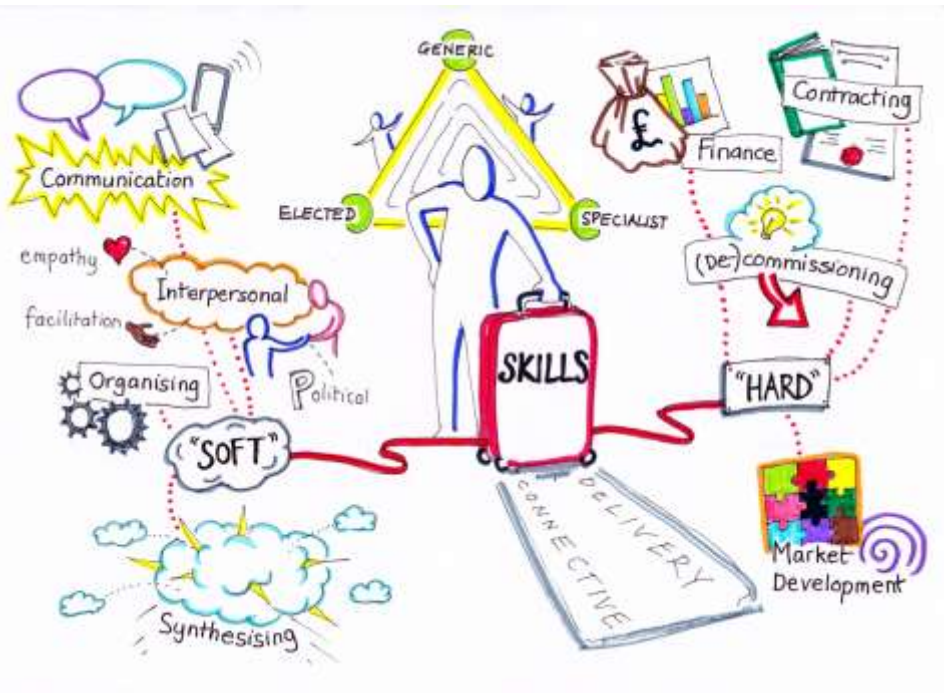 GENERIC
ELECTED
SPECIALIST
Communication
empathy
Interpersonal
facilitation
Political
Organising
"SOFT"
Synthesising
SKILLS
CONNECTIVE
DELIVERY
£
Finance
Contracting
(De-)commissioning
"HARD"
Market
Development